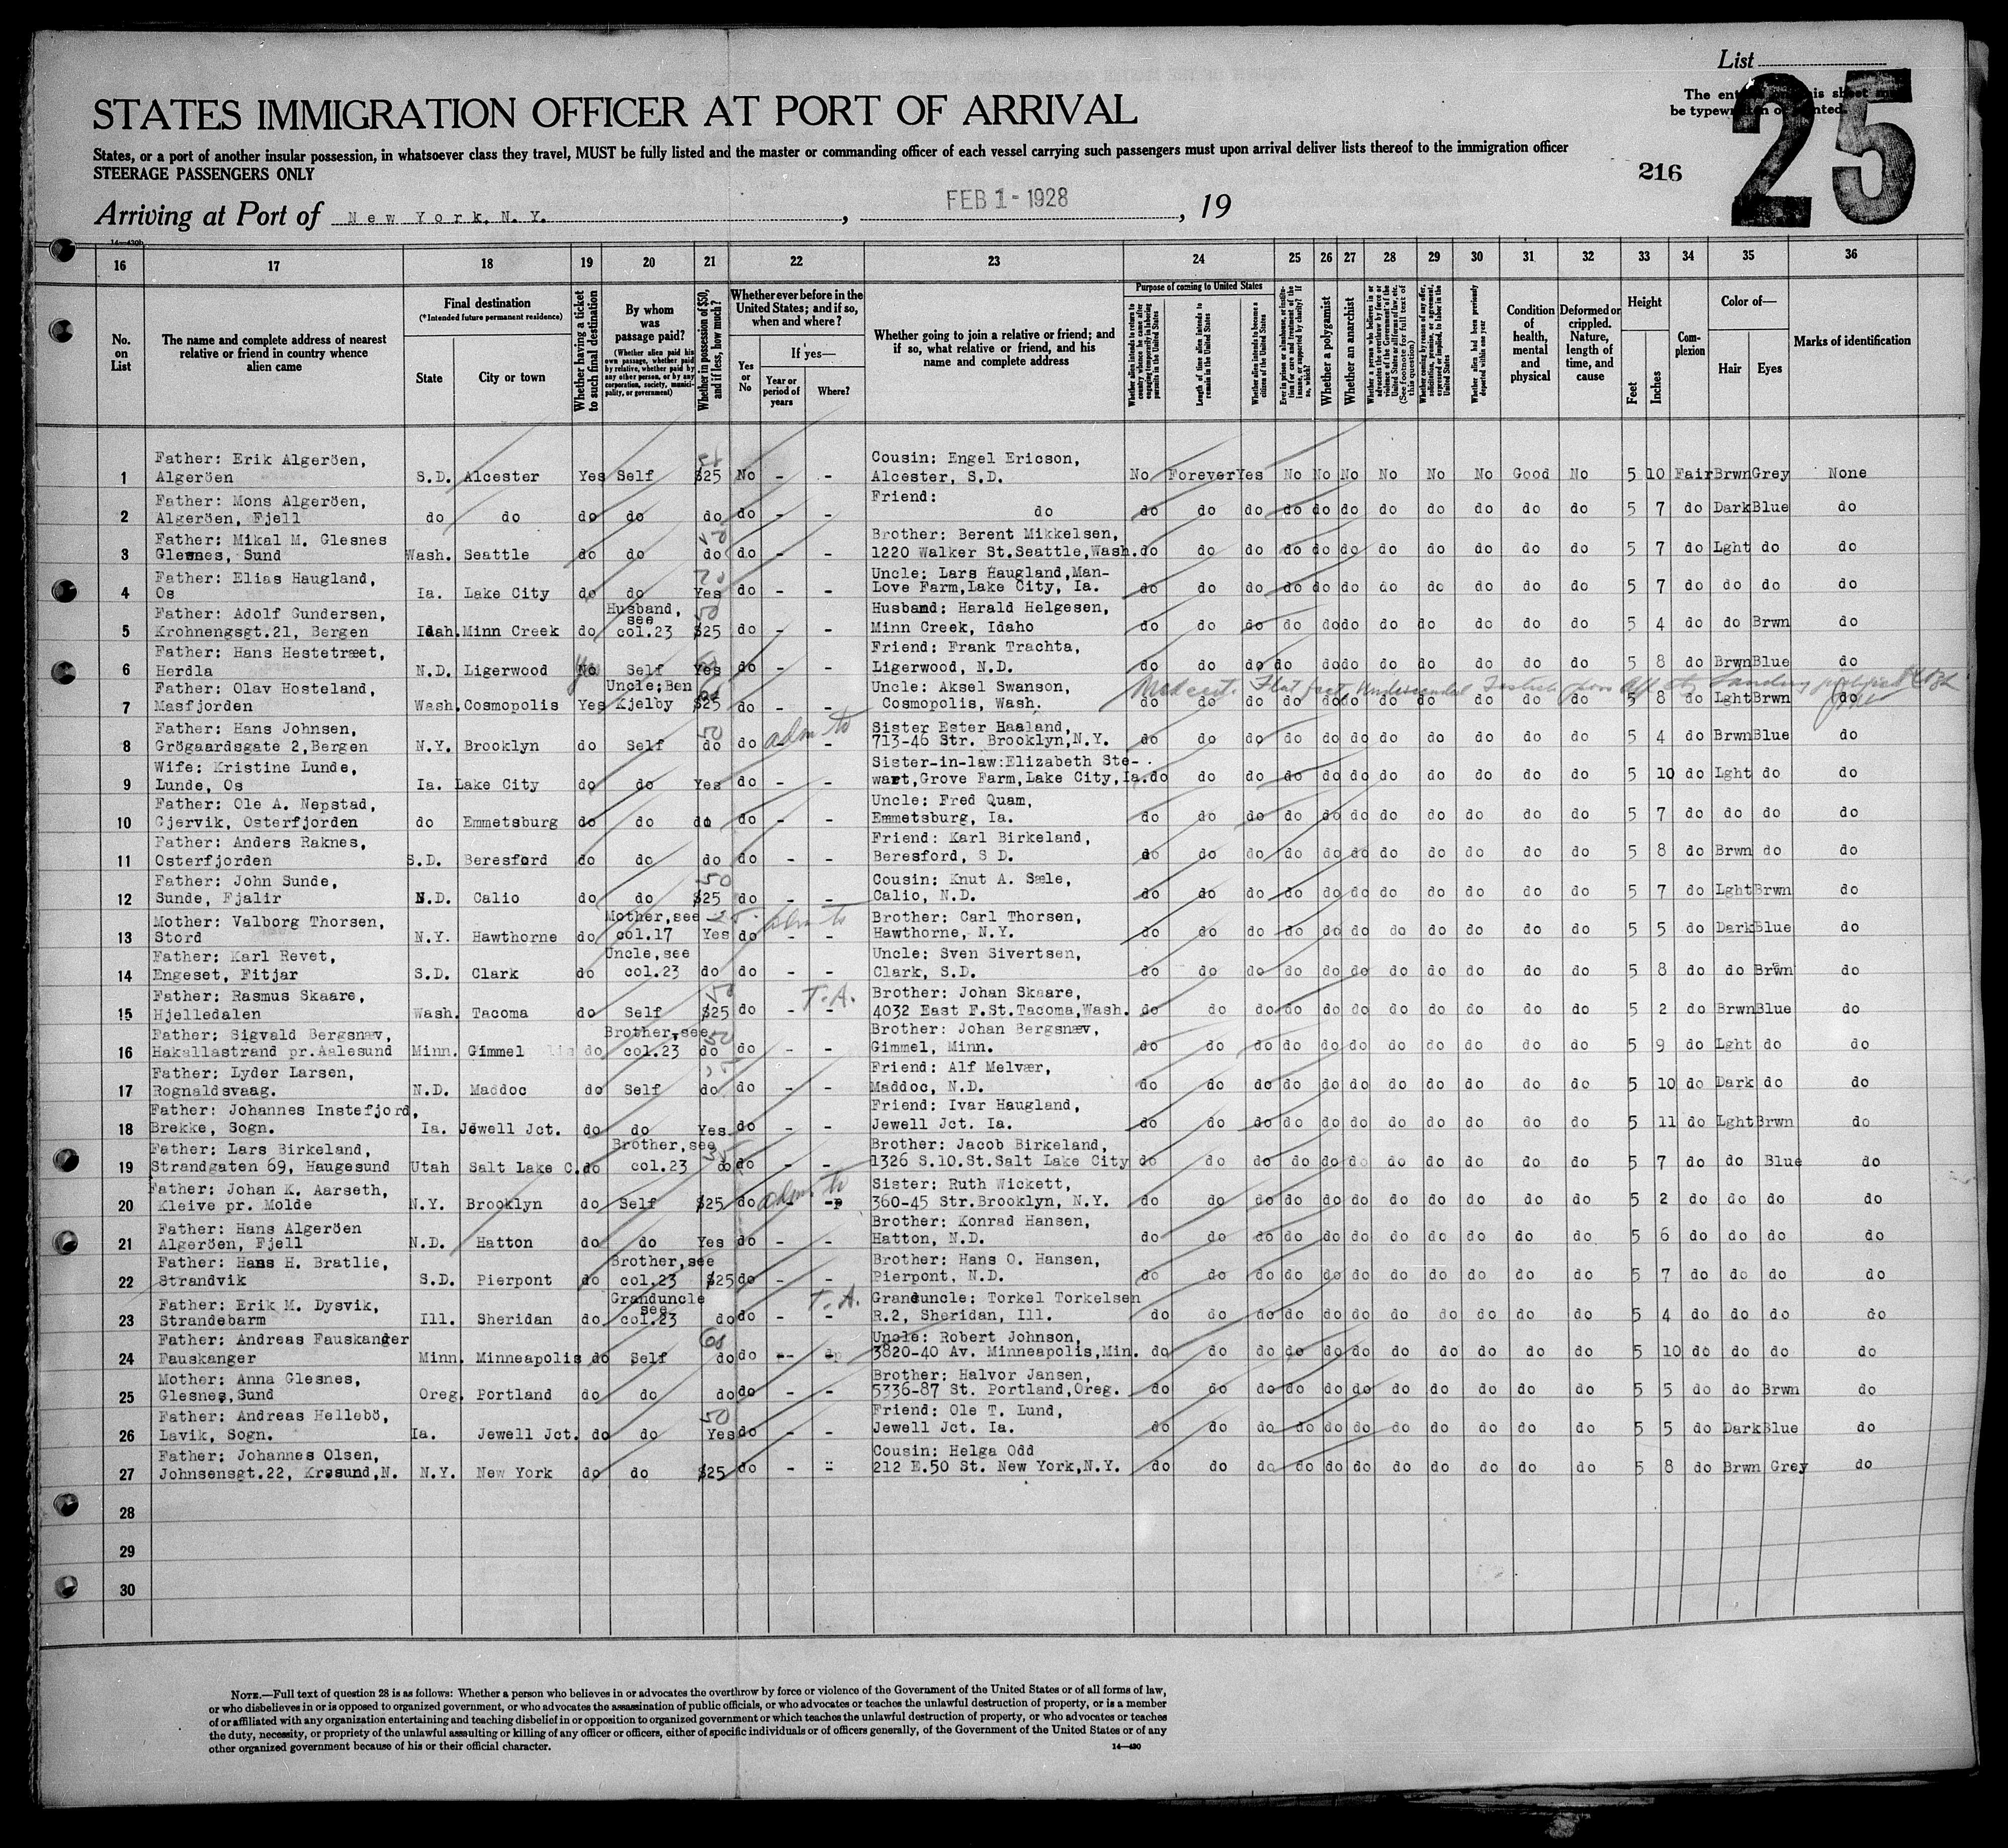 List
25
The entries on this sheet must
be typewritten or printed.
STATES IMMIGRATION OFFICER AT PORT OF ARRIVAL
States, or a port of another insular possession, in whatsoever class they travel, MUST be fully listed and the master or commanding officer of each vessel carrying such passengers must upon arrival deliver lists thereof to the immigration officer
STEERAGE PASSENGERS ONLY
216
Arriving at Port of New York, N. Y. , FEB 1 - 1928 , 19
16 17 18 19 20 21 22 23 24 25 26 27 28 29 30 31 32 33 34 35 36
No. on List
The name and complete address of nearest relative or friend in country whence alien came
Final destination
(*Intended future permanent residence)
State
City or town
Whether having a ticket to such final destination
By whom was passage paid?
(Whether alien paid his own passage, whether paid by relative, whether paid by any other person, or by any corporation, society, municipality, or government)
Whether in possession of $50, and if less, how much?
Whether ever before in the United States; and if so, when and where?
Yes or No
If yes—
Year or period of years
Where?
Whether going to join a relative or friend; and if so, what relative or friend, and his name and complete address
Purpose of coming to United States
Whether alien intends to return to country whence he came after engaging temporarily in laboring pursuits in the United States
Length of time alien intends to remain in the United States
Whether alien intends to become a citizen of the United States
Ever in prison or almshouse, or institution for care and treatment of the insane, or supported by charity? If so, which?
Whether a polygamist
Whether an anarchist
Whether a person who believes in or advocates the overthrow by force or violence of the Government of the United States or all forms of law, etc. (See footnote for full text of this question)
Whether coming by reason of any offer, solicitation, promise, or agreement, expressed or implied, to labor in the United States
Whether alien had been previously deported within one year
Condition of health, mental and physical
Deformed or crippled. Nature, length of time, and cause
Height
Feet
Inches
Complexion
Color of—
Hair
Eyes
Marks of identification
Father: Erik Algeröen, Cousin: Engel Ericson,
1 Algeröen S.D. Alcester Yes Self $25 No - - Alcester, S.D. No Forever Yes No No No No No No Good No 5 10 Fair Brwn Grey None
Father: Mons Algeröen, Friend:
2 Algeröen, Fjell do do do do do do - - do do do do do do do do do do do do 5 7 do Dark Blue do
Father: Mikal M. Glesnes Brother: Berent Mikkelsen,
3 Glesnes, Sund Wash. Seattle do do do do - - 1220 Walker St.Seattle,Wash. do do do do do do do do do do do 5 7 do Lght do do
Father: Elias Haugland, Uncle: Lars Haugland,Man-
4 Os Ia. Lake City do do Yes do - - Love Farm,Lake City, Ia. do do do do do do do do do do do 5 7 do do do do
Father: Adolf Gundersen, Husband, see Husband: Harald Helgesen,
5 Krohnengsgt.21, Bergen Idah. Minn Creek do col.23 $25 do - - Minn Creek, Idaho do do do do do do do do do do do 5 4 do do Brwn do
Father: Hans Hestetræet, Friend: Frank Trachta,
6 Herdla N.D. Ligerwood No Self Yes do - - Ligerwood, N.D. do do do do do do do do do do do 5 8 do Brwn Blue do
Father: Olav Hosteland, Uncle: Ben Uncle: Aksel Swanson,
7 Masfjorden Wash. Cosmopolis Yes Kjelby $25 do Cosmopolis, Wash. do do do do do do do do do do do 5 8 do Lght Brwn do
Father: Hans Johnsen, Sister Ester Haaland,
8 Grögaardsgate 2,Bergen N.Y. Brooklyn do Self do do - - 713-46 Str. Brooklyn,N.Y. do do do do do do do do do do do 5 4 do Brwn Blue do
Wife: Kristine Lunde, Sister-in-law:Elizabeth Ste-
9 Lunde, Os Ia. Lake City do do Yes do - - wart,Grove Farm,Lake City,Ia. do do do do do do do do do do do 5 10 do Lght do do
Father: Ole A. Nepstad, Uncle: Fred Quam,
10 Gjervik, Osterfjorden do Emmetsburg do do do do - - Emmetsburg, Ia. do do do do do do do do do do do 5 7 do do do do
Father: Anders Raknes, Friend: Karl Birkeland,
11 Osterfjorden S.D. Beresford do do do do - - Beresford, S D. do do do do do do do do do do do 5 8 do Brwn do do
Father: John Sunde, 50 Cousin: Knut A. Sæle,
12 Sunde, Fjalir N.D. Calio do do $25 do - - Calio, N.D. do do do do do do do do do do do 5 7 do Lght Brwn do
Mother: Valborg Thorsen, Mother,see Brother: Carl Thorsen,
13 Stord N.Y. Hawthorne do col.17 Yes do - - Hawthorne, N.Y. do do do do do do do do do do do 5 5 do Dark Blue do
Father: Karl Revet, Uncle,see Uncle: Sven Sivertsen,
14 Engeset, Fitjar S.D. Clark do col.23 do do - - Clark, S.D. do do do do do do do do do do do 5 8 do do Brwn do
Father: Rasmus Skaare, T.A. Brother: Johan Skaare,
15 Hjelledalen Wash. Tacoma do Self $25 do - - 4032 East F.St.Tacoma,Wash. do do do do do do do do do do do 5 2 do Brwn Blue do
Father: Sigvald Bergsnæv, Brother,see 50 Brother: Johan Bergsnæv,
16 Hakallastrand pr.Aalesund Minn. Gimmel do col.23 do do - - Gimmel, Minn. do do do do do do do do do do do 5 9 do Lght do do
Father: Lyder Larsen, Friend: Alf Melvær,
17 Rognaldsvaag. N.D. Maddoc do Self do do - - Maddoc, N.D. do do do do do do do do do do do 5 10 do Dark do do
Father: Johannes Instefjord, Friend: Ivar Haugland,
18 Brekke, Sogn. Ia. Jewell Jct. do do Yes do - - Jewell Jct. Ia. do do do do do do do do do do do 5 11 do Lght Brwn do
Father: Lars Birkeland, Brother,see Brother: Jacob Birkeland,
19 Strandgaten 69, Haugesund Utah Salt Lake C. do col.23 do do - - 1326 S.10.St.Salt Lake City do do do do do do do do do do do 5 7 do do Blue do
Father: Johan K. Aarseth, Sister: Ruth Wickett,
20 Kleive pr. Molde N.Y. Brooklyn do Self $25 do 360-45 Str.Brooklyn, N.Y. do do do do do do do do do do do 5 2 do do do do
Father: Hans Algeröen Brother: Konrad Hansen,
21 Algeröen, Fjell N.D. Hatton do do Yes do - - Hatton, N.D. do do do do do do do do do do do 5 6 do do do do
Father: Hans H. Bratlie, Brother,see Brother: Hans O. Hansen,
22 Strandvik S.D. Pierpont do col.23 $25 do - - Pierpont, N.D. do do do do do do do do do do do 5 7 do do do do
Father: Erik M. Dysvik, Granduncle see T.A. Granduncle: Torkel Torkelsen
23 Strandebarm Ill. Sheridan do col.23 do do - - R.2, Sheridan, Ill. do do do do do do do do do do do 5 4 do do do do
Father: Andreas Fauskanger 60 Uncle: Robert Johnson,
24 Fauskanger Minn. Minneapolis do Self do do 3820-40 Av. Minneapolis,Min. do do do do do do do do do do do 5 10 do do do do
Mother: Anna Glesnes, Brother: Halvor Jansen,
25 Glesnes,Sund Oreg. Portland do do do do - - 5336-87 St. Portland,Oreg. do do do do do do do do do do do 5 5 do do Brwn do
Father: Andreas Hellebö, 50 Friend: Ole T. Lund,
26 Lavik, Sogn. Ia. Jewell Jct. do do Yes do - - Jewell Jct. Ia. do do do do do do do do do do do 5 5 do Dark Blue do
Father: Johannes Olsen, Cousin: Helga Odd
27 Johnsensgt.22, Krøsund,N. N.Y. New York do do $25 do - - 212 E.50 St. New York,N.Y. do do do do do do do do do do do 5 8 do Brwn Grey do
28
29
30
NOTE.—Full text of question 28 is as follows: Whether a person who believes in or advocates the overthrow by force or violence of the Government of the United States or of all forms of law,
or who disbelieves in or is opposed to organized government, or who advocates the assassination of public officials, or who advocates or teaches the unlawful destruction of property, or is a member
of or affiliated with any organization entertaining and teaching disbelief in or opposition to organized government or which teaches the unlawful destruction of property, or who advocates or teaches
the duty, necessity, or propriety of the unlawful assaulting or killing of any officer or officers, either of specific individuals or of officers generally, of the Government of the United States or of any
other organized government because of his or their official character.
14—430